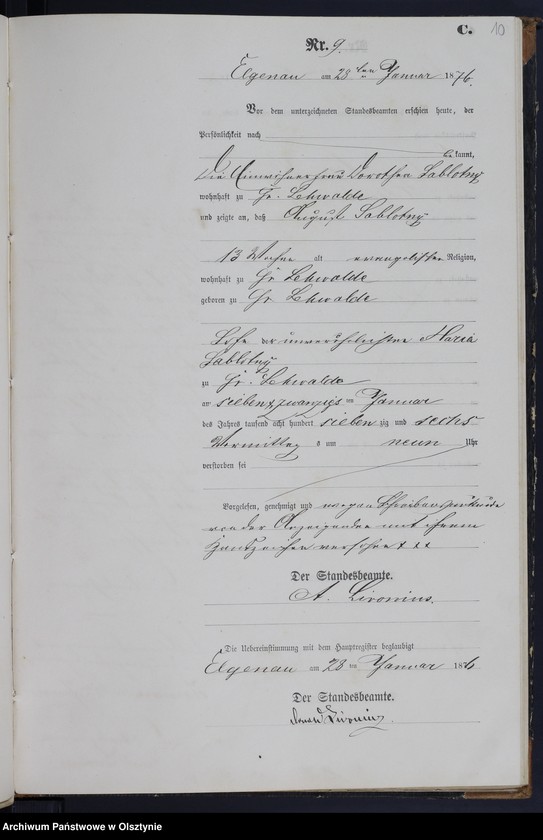 C. 10
Nr. 9.
Elgenau am 28ten Januar 1876.
Vor dem unterzeichneten Standesbeamten erschien heute, der
Persönlichkeit nach
be kannt,
die Einwohnerfrau Dorothea Sablotny
wohnhaft zu Gr. Lehwalde
und zeigte an, daß August Sablotny
13 Wochen alt evangelischer Religion,
wohnhaft zu Gr Lehwalde
geboren zu Gr Lehwalde
Sohn der unverehelichten Maria
Sablotny
zu Gr. Lehwalde
am sieben zwanzigs ten Januar
des Jahres tausend acht hundert sieben zig und sechs
Vormittag s um neun Uhr
verstorben sei
Vorgelesen, genehmigt und wegen
von der Anzeigenden mit ihrem
Handzeichen versehen + + +
Der Standesbeamte.
A. Livonius.
Die Uebereinstimmung mit dem Hauptregister beglaubigt
Elgenau am 28 ten Januar 1876
Der Standesbeamte.
Livonius
Archiwum Państwowe w Olsztynie